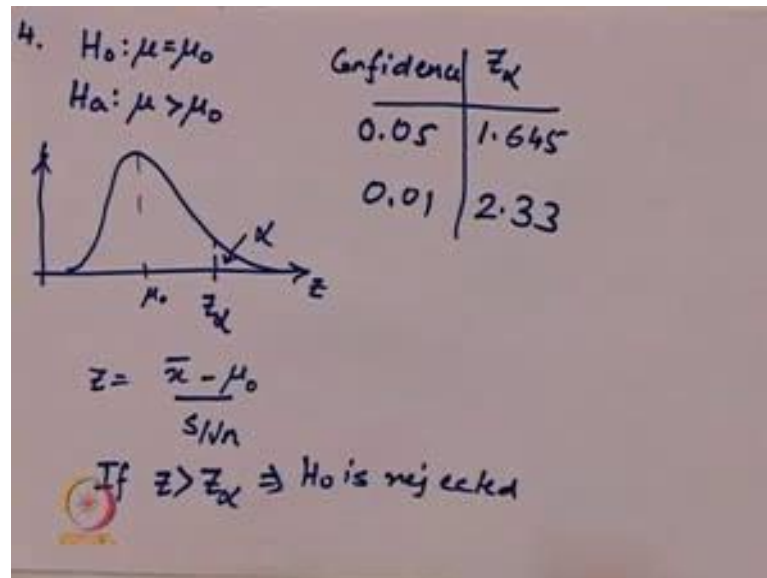 4. H₀: μ=μ₀
Ha: μ>μ₀
Confidence Zα
0.05 1.645
0.01 2.33
α
μ₀ Zα z
z = x̄ - μ₀
s/√n
If z>Zα ⇒ H₀ is rejected